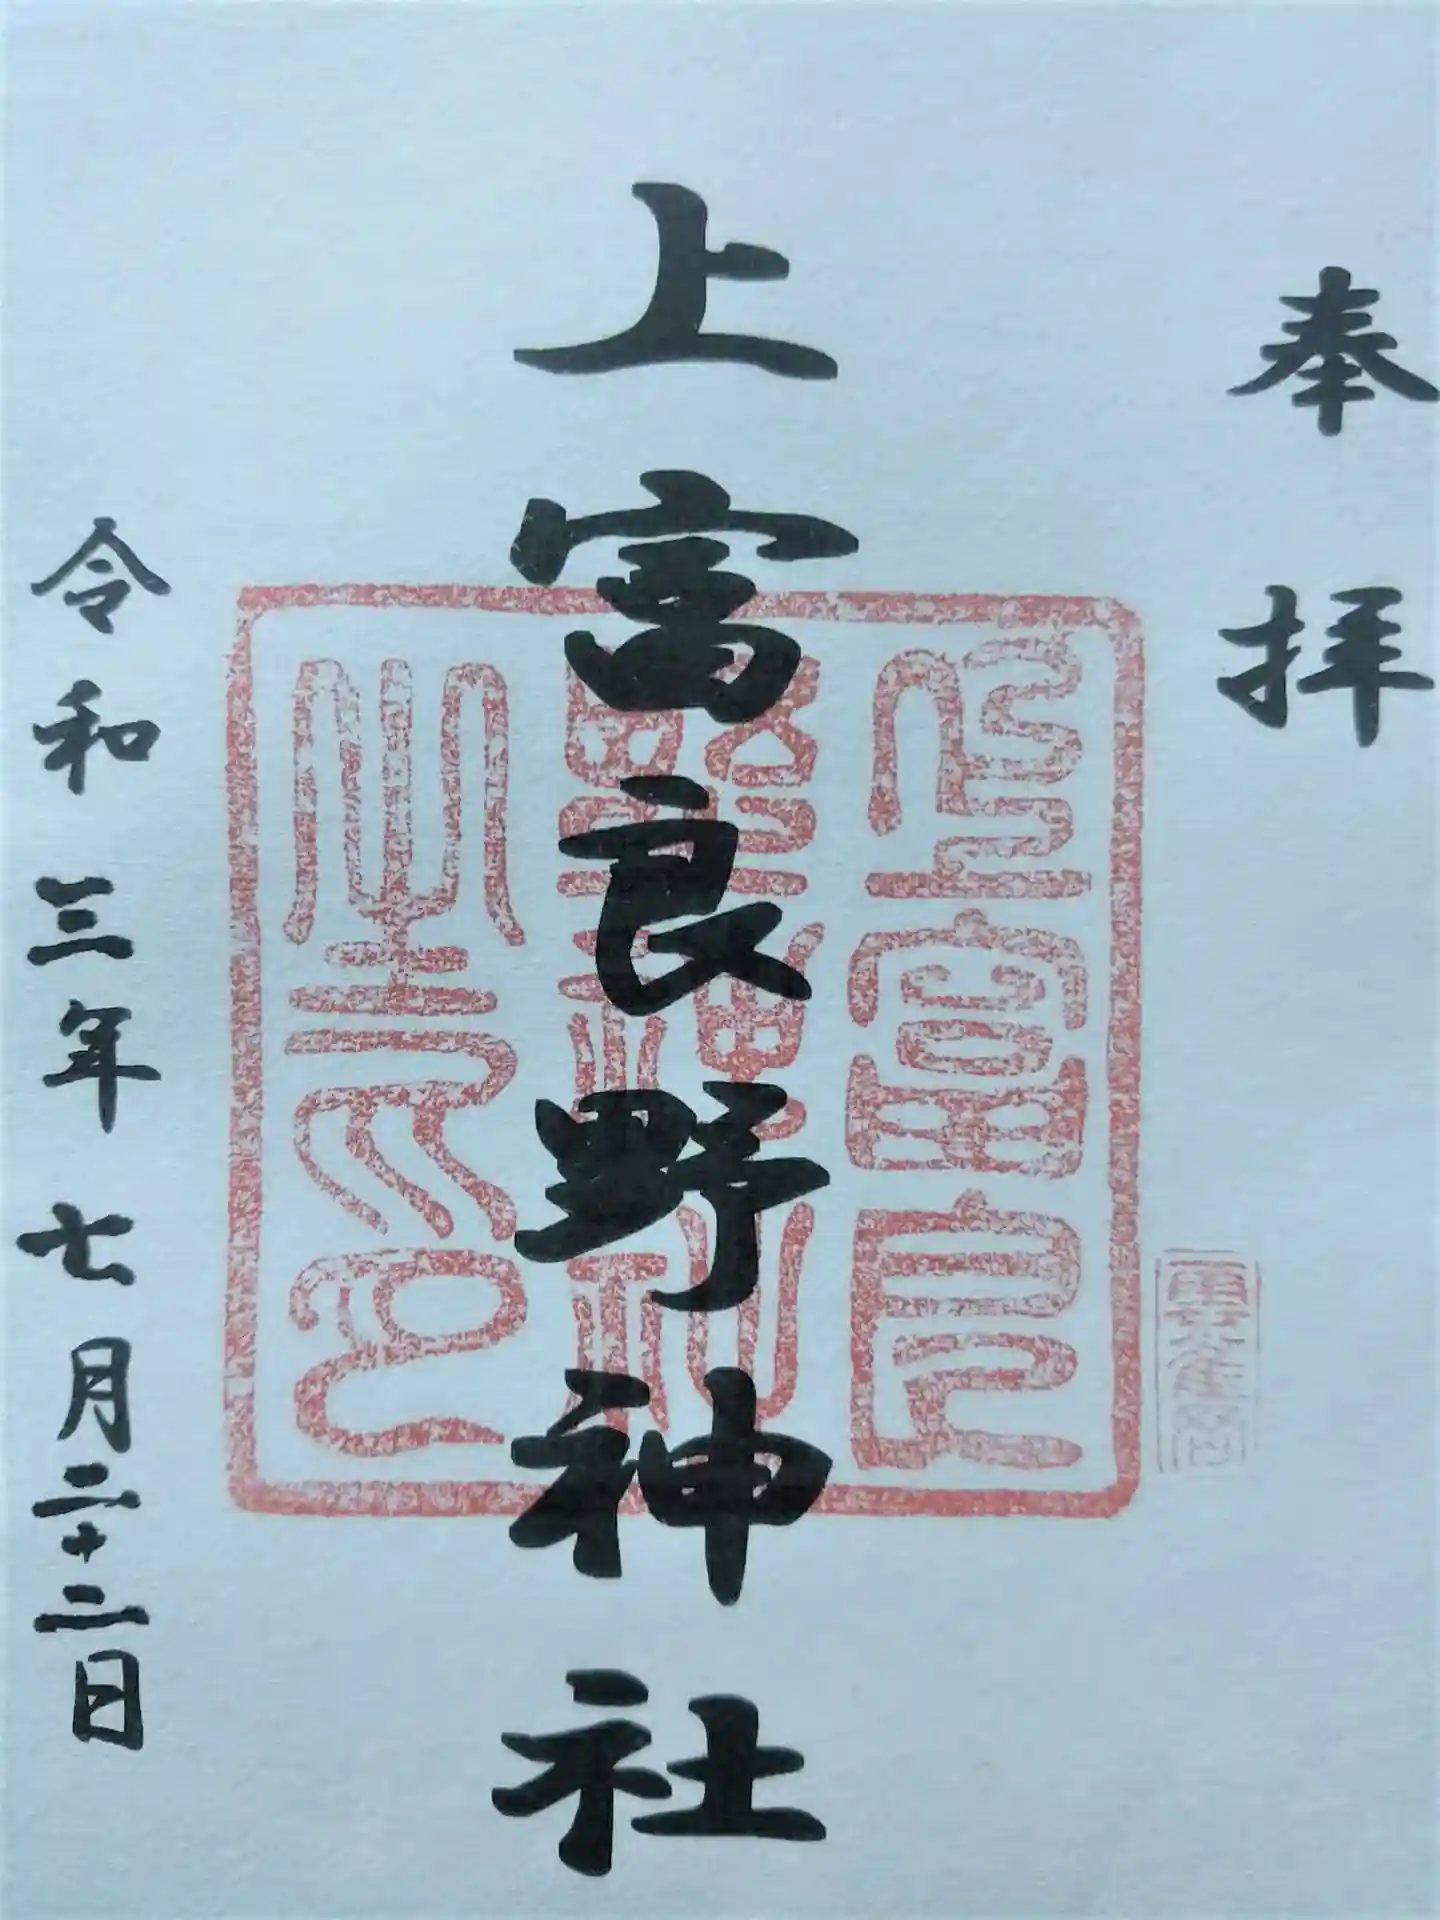 奉拝
上富良野神社
上富良
野神社
之印
令和三年七月二十二日